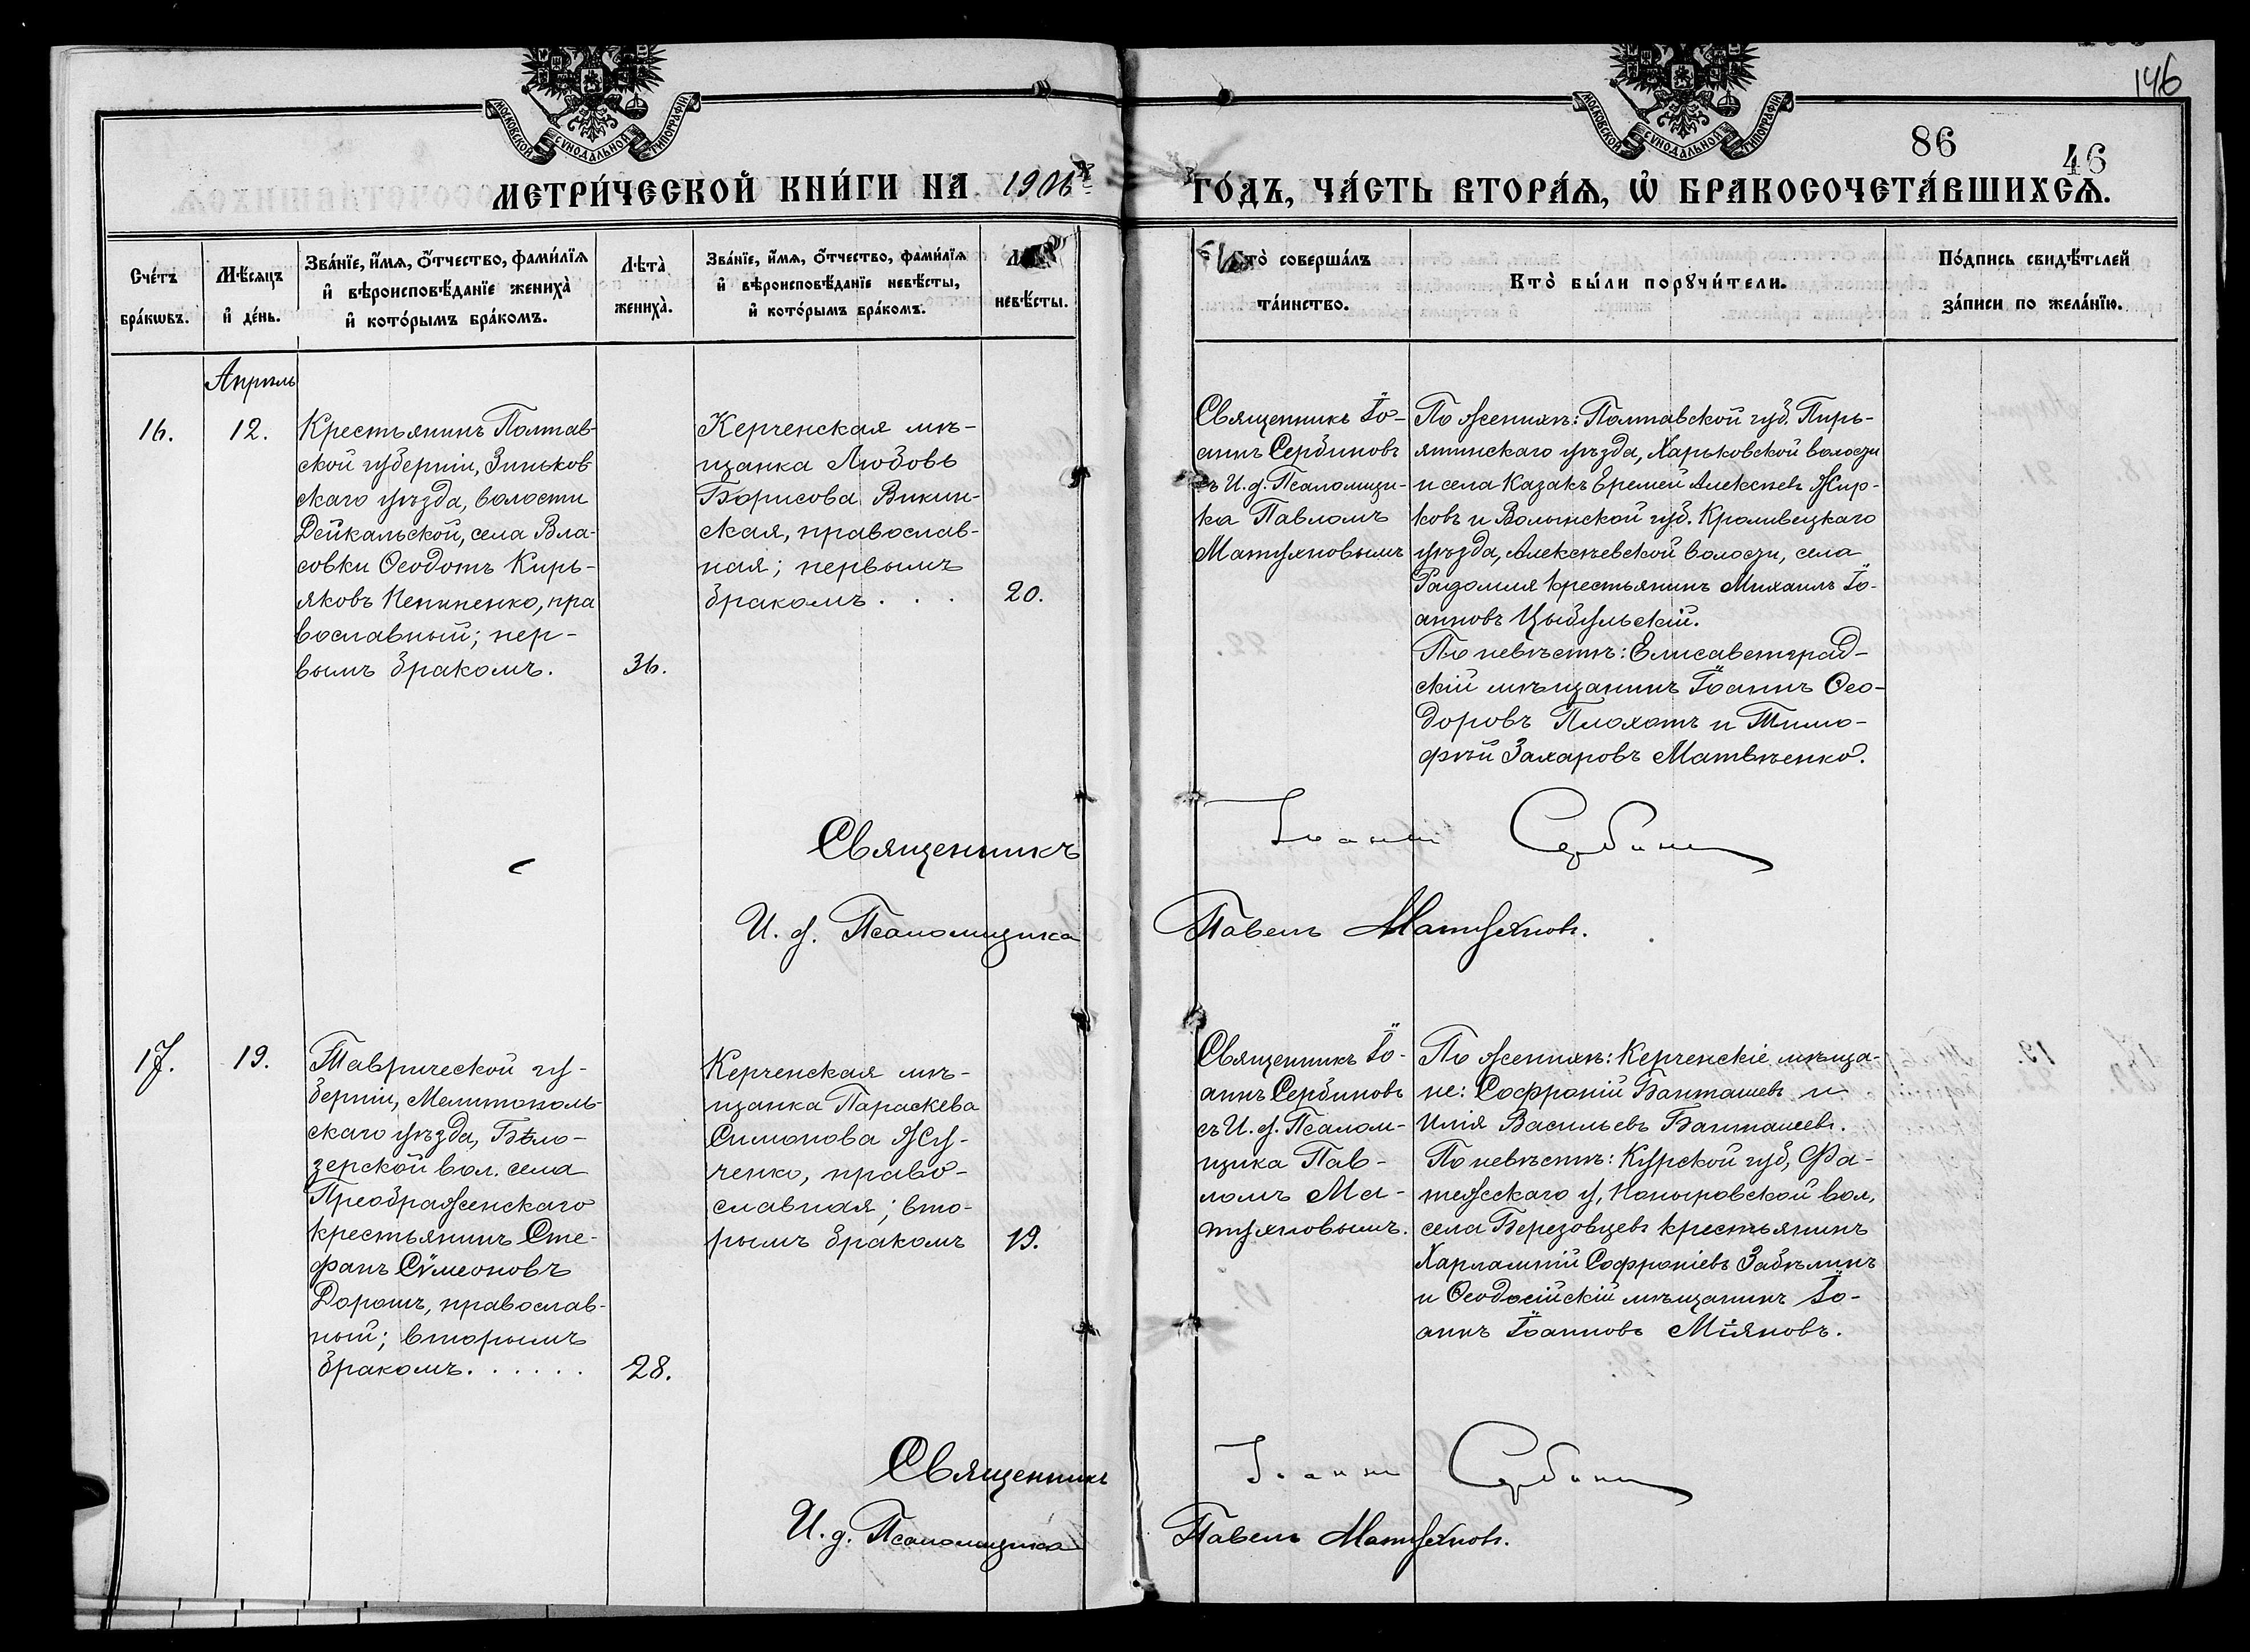 146
86
46
МОСКОВСКОЙ СУНОДАЛЬНОЙ ТИПОГРАФІИ
МОСКОВСКОЙ СУНОДАЛЬНОЙ ТИПОГРАФІИ
МЕТРИ́ЧЕСКОЙ КНИ́ГИ НА 1906
ГО́ДЪ, ЧА́СТЬ ВТОРА́Ѧ, Ѡ҆ БРАКОСОЧЕТА́ВШИХСѦ.
Сче́тъ бра́кѡвъ.
Мѣ́сяцъ и҆ де́нь.
Зва́нїе, и҆́мѧ, о҆́тчество, фами́лїѧ
и҆ вѣроисповѣ́данїе жениха̀
и҆ кото́рымъ бра́комъ.
Лѣта̀ жениха̀.
Зва́нїе, и҆́мѧ, о҆́тчество, фами́лїѧ
и҆ вѣроисповѣ́данїе невѣ́сты,
и҆ кото́рымъ бра́комъ.
невѣ́сты.
Кто̀ соверша́лъ
та́инство.
Кто̀ бы́ли порꙋчи́тели.
По́дпись свидѣ́телей
за́писи по жела́нїю.
Апрѣль
16.
12.
Крестьянинъ Полтав-
ской губерніи, Зиньков
скаго уѣзда, волости
Дейкальской, села Вла-
совки Ѳеодотъ Кирь-
яковъ Пепиненко, пра
вославный; пер-
вымъ бракомъ.
36.
Керченская мѣ-
щанка Любовь
Борисова Викин-
ская, православ-
ная; первымъ
бракомъ . . .
20.
Священникъ Іо-
аннъ Сербиновъ
съ И. д. Псаломщи-
ка Павломъ
Матуяновымъ
По женихѣ: Полтавской губ. Пиръ-
ятинскаго уѣзда, Харьковской волости
и села Казакъ Еремей Алексѣевъ Жир-
ковъ и Волынской губ. Кроливецкаго
уѣзда, Алексѣевской волости, села
Радомля крестьянинъ Михаилъ Іо-
анновъ Цыбульскій.
По невѣстѣ: Елисаветград-
скій мѣщанинъ Іоаннъ Ѳео-
доровъ Плохотъ и Тимо-
фѣй Захаровъ Матвѣенко.
Священникъ Іоаннъ Сербиновъ
И. д. Псаломщика Павелъ Матуяновъ.
17.
19.
Таврической гу-
берніи, Мелитополь-
скаго уѣзда, Бѣло-
зерской вол. села
Преображенскаго
крестьянинъ Сте-
фанъ Сѵмеоновъ
Дорошъ, православ-
ный; вторымъ
бракомъ . . . . . .
28.
Керченская мѣ-
щанка Параскева
Симонова Жу-
ченко, право-
славная; вто-
рымъ бракомъ
19.
Священникъ Іо-
аннъ Сербиновъ
съ И. д. Псалом-
щика Пав-
ломъ Ма-
туяновымъ.
По женихѣ: Керченскіе мѣща-
не: Софроній Банташевъ и
Илія Васильевъ Банташевъ.
По невѣстѣ: Курской губ, Фа-
тежскаго у, Поныровской вол,
села Березовцевъ крестьянинъ
Харлампій Софроніевъ Забѣлинъ
и Ѳеодосійскій мѣщанинъ Іо-
аннъ ІоанновъМіяновъ.
Священникъ Іоаннъ Сербиновъ
И. д. Псаломщика Павелъ Матуяновъ.